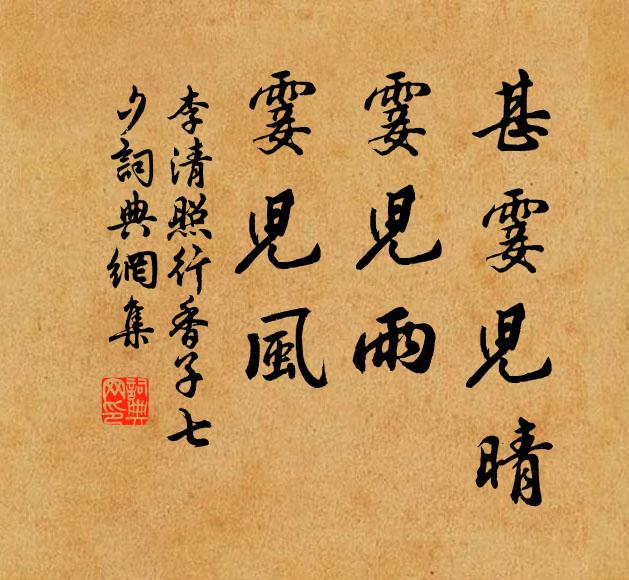 甚霎兒晴
霎兒雨
霎兒風
李清照行香子七
夕詞典網集
詞典网印